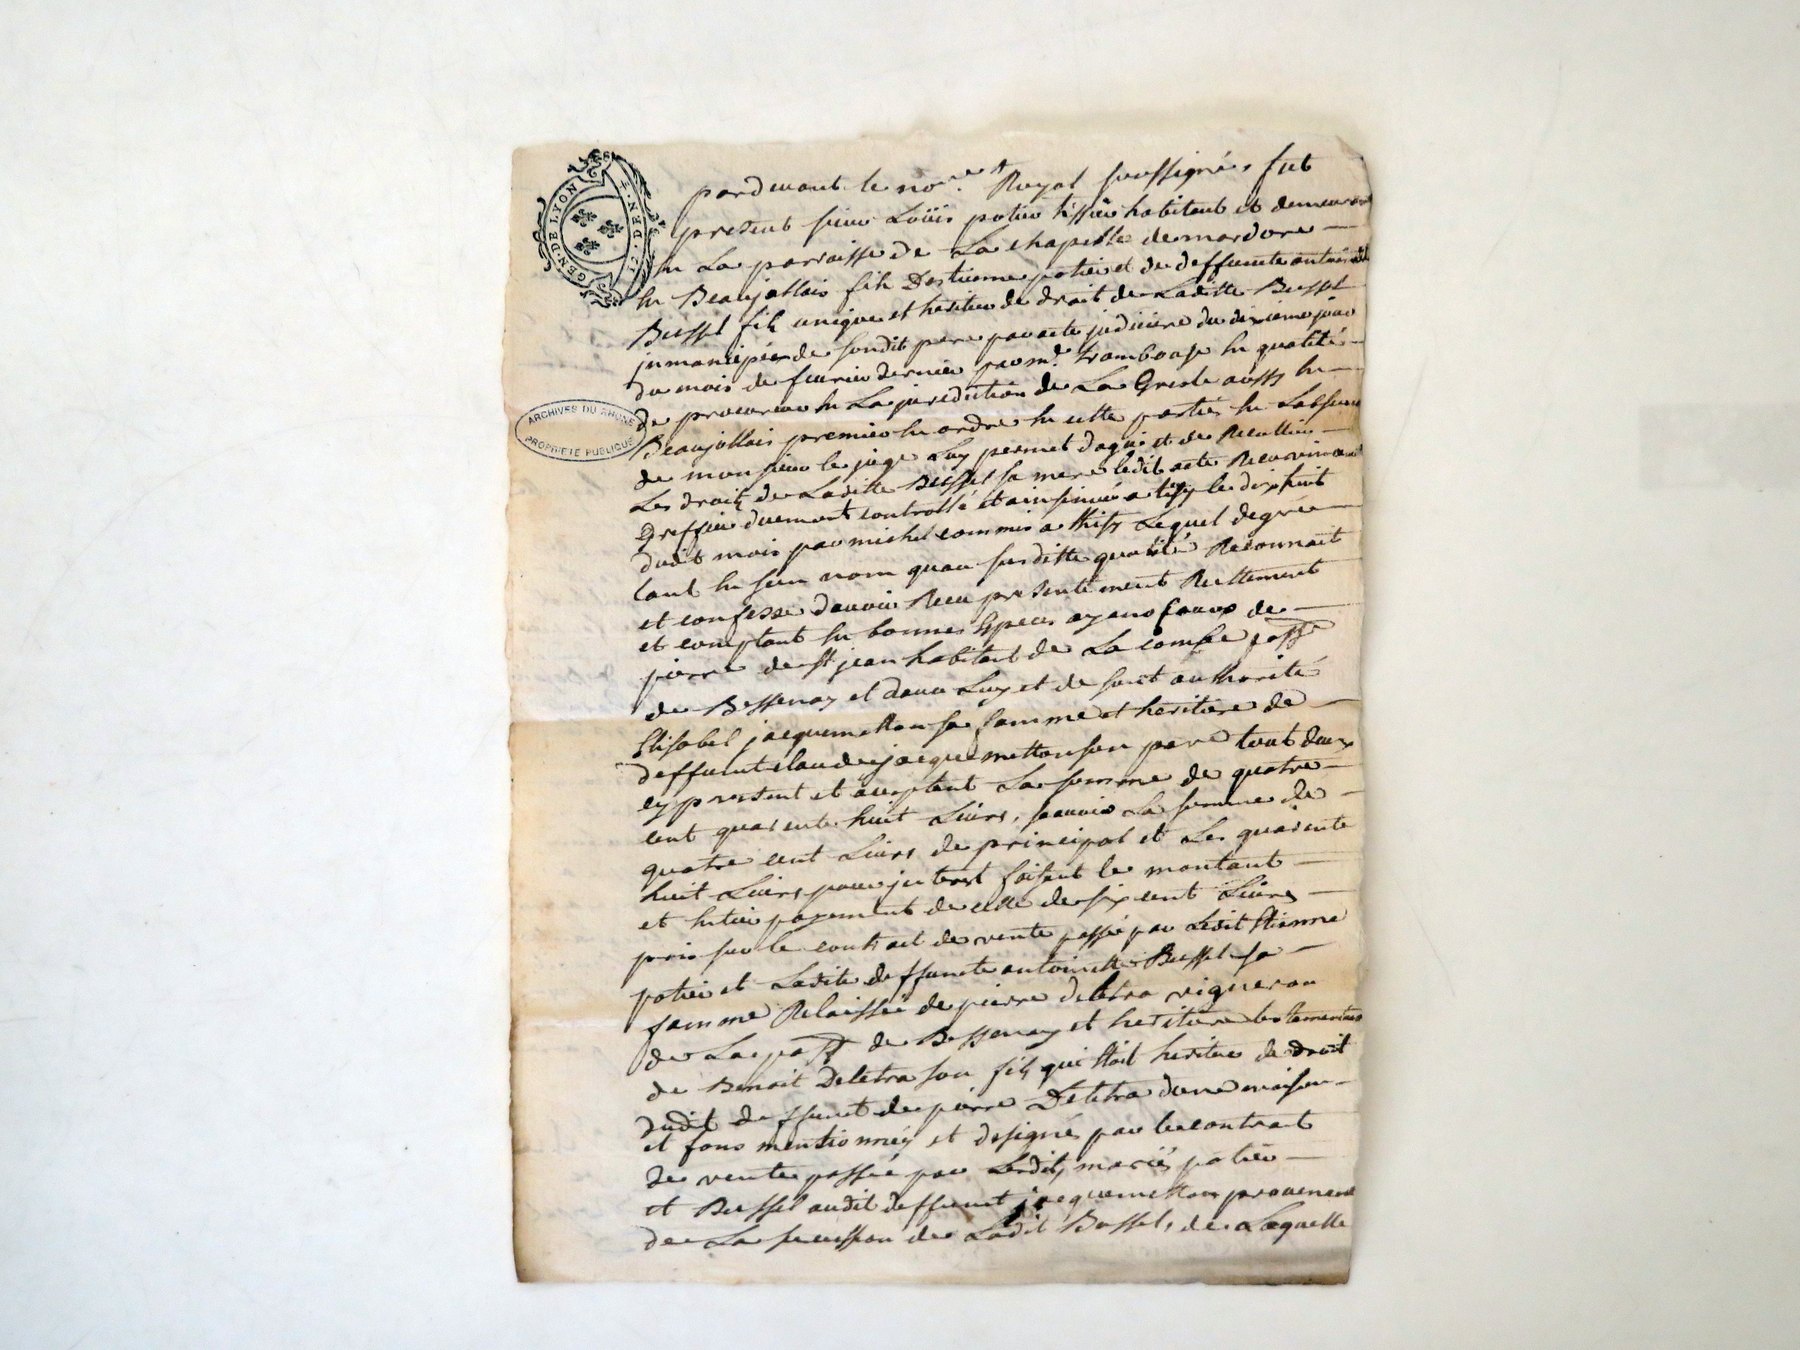 GEN·DE LYON
4·DEN·CI
ARCHIVES DU RHONE
PROPRIETE PUBLIQUE
pardevant le no.re Royal soussigné, fut
present sieur Loüis potier tissier habitant et demeurant
en La parroisse de La chapelle de mardore
en Beaujollais fils D'estienne potier et de deffunte antoinette
Bussel fils unique et heritier de droit de Laditte Bussel
jnmancipé de sondit pere par acte judiciere du dixieme jour
du mois de feurier dernier par m.e trambouse en qualité
de procureur en La jurediction de La Gresle aussy en
Beaujollais premier en ordre en cette partie en Labsence
de monsieur le juge Luy permet dagir et de Recullir
Les droits de Laditte Bussel sa mere ledit acte
Greffier duement controllé et ainsinué a le dixhuit
dudit mois par michel commis a thisy Lequel degrée
tant en son nom quau susditte qualité Reconnait
et confesse dauoir Receu presentement Reellement
et comptant en bonnes Especes ayant cours de
pierre de st jean habitant de La combe passe
de Bessenay et daue Luy et de soüt authorité
Elisabet jacquemetton sa famme et heritiere de
deffunt claude jacquemetton son pere tout deux
cy present et aceptant La somme de quatre
cent quarente huit Liures, sauoir La somme de
quatre cent Liures de principal et Les quarente
huit Liures pour jnterest faisant le montant
et entier payement de celle de six cent Liures
prix sur le contract de vente passé par Ledit Etienne
potier et Ladite deffuncte antoinette Bussel sa
famme Relaissée de pierre deletra vigneron
de La passe de Bessenay et heritiere testamentere
de Benoit Deletra son fils qui Etoit heritier de droit
dudit deffunct de pierre Deletra dune maison
et fons mentionnéz et designé par le contract
de vente passée par Lesdits mariés potier
et Bussel audit deffunct jacquemetton prouenant
de La sucession de Ladit Bussel, de Laquelle